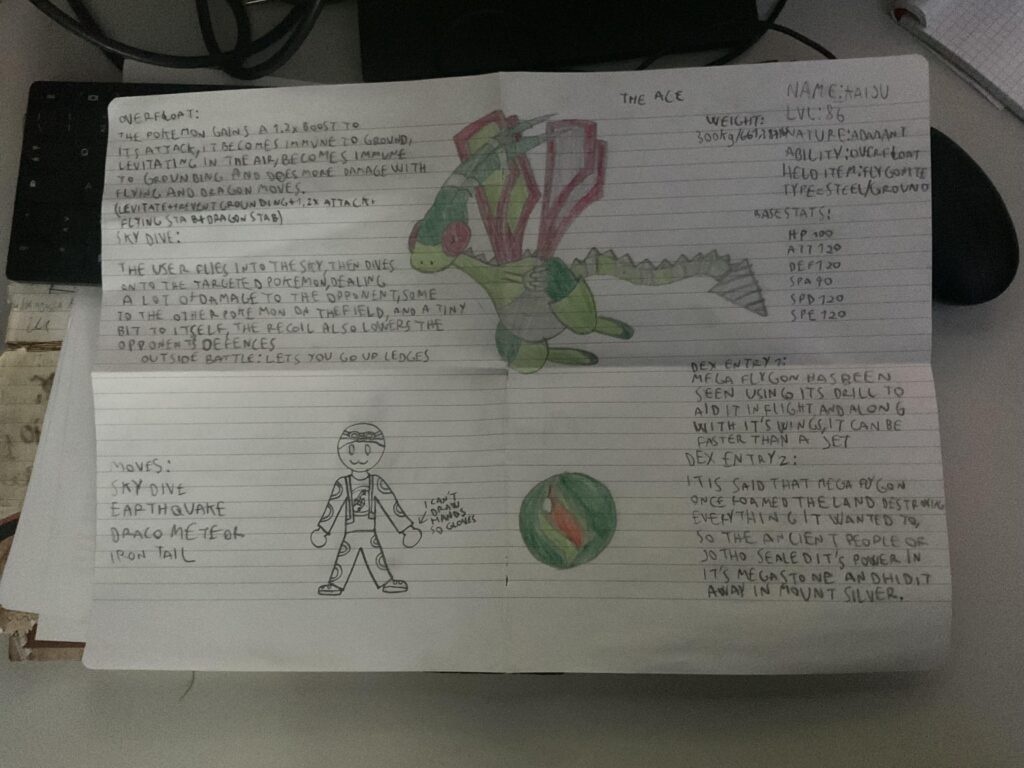 OVERFLOAT:
THE POKEMON GAINS A 1,2X BOOST TO
ITS ATTACK, IT BECOMES IMMUNE TO GROUND,
LEVITATING IN THE AIR, BECOMES IMMUNE
TO GROUNDING AND DOES MORE DAMAGE WITH
FLYING AND DRAGON MOVES.
(LEVITATE+PREVENT GROUNDING+1,2X ATTACK+
FLYING STAB+DRAGON STAB)
SKY DIVE:
THE USER FLIES INTO THE SKY, THEN DIVES
ONTO THE TARGETED POKEMON, DEALING
A LOT OF DAMAGE TO THE OPPONENT, SOME
TO THE OTHER POKEMON ON THE FIELD, AND A TINY
BIT TO ITSELF, THE RECOIL ALSO LOWERS THE
OPPONENTS DEFENCES
OUTSIDE BATTLE: LETS YOU GO UP LEDGES
THE ACE
WEIGHT:
300kg/661,
NAME: KAIJU
LVL: 86
NATURE: ADAMANT
ABILITY: OVERFLOAT
HELD ITEM: FLYGONITE
TYPE=STEEL/GROUND
BASE STATS:
HP 100
ATT 120
DEF 120
SPA 90
SPD 120
SPE 120
MOVES:
SKY DIVE
EARTHQUAKE
DRACO METEOR
IRON TAIL
I CAN'T
DRAW
HANDS
SO GLOVES
DEX ENTRY 1:
MEGA FLYGON HAS BEEN
SEEN USING ITS DRILL TO
AID IT IN FLIGHT, AND ALONG
WITH IT'S WINGS, IT CAN BE
FASTER THAN A JET
DEX ENTRY 2:
IT IS SAID THAT MEGA FLYGON
ONCE ROAMED THE LAND DESTROYING
EVERYTHING IT WANTED TO,
SO THE ANCIENT PEOPLE OF
JOTHO SEALED IT'S POWER IN
IT'S MEGASTONE AND HID IT
AWAY IN MOUNT SILVER.